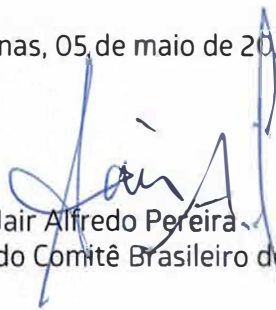 nas, 05 de maio de 20
Jair Alfredo Pereira
do Comitê Brasileiro d